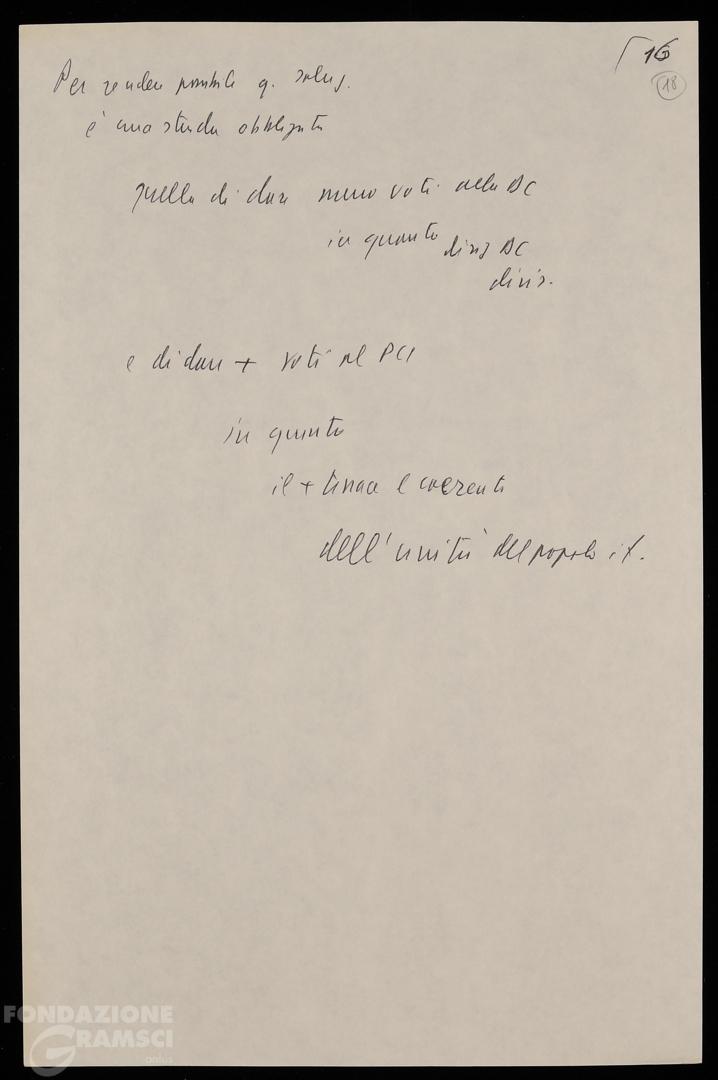 16
18
Per rendere possibile q. soluz.
è una strada obbligata
quella di dare meno voti alla DC
in quanto dirig DC
divis.
e di dare + voti al PCI
in quanto
il + tenace e coerente
dell'unità del popolo it.
FONDAZIONE
GRAMSCI
onlus